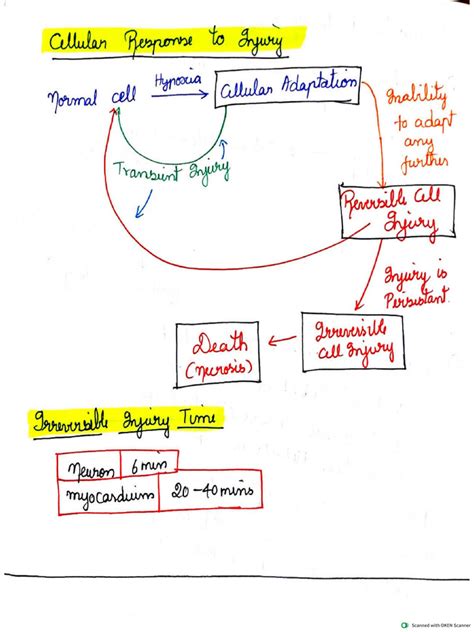 Cellular Response to Injury
Normal cell
Hypoxia
Cellular Adaptation
Inability
to adapt
any
further
Transient Injury
Reversible Cell
Injury
Injury is
Persistant.
Irreversible
Cell Injury
Death
(necrosis)
Irreversible Injury Time
Neuron 6 min
myocardium 20-40 mins
Scanned with OKEN Scanner